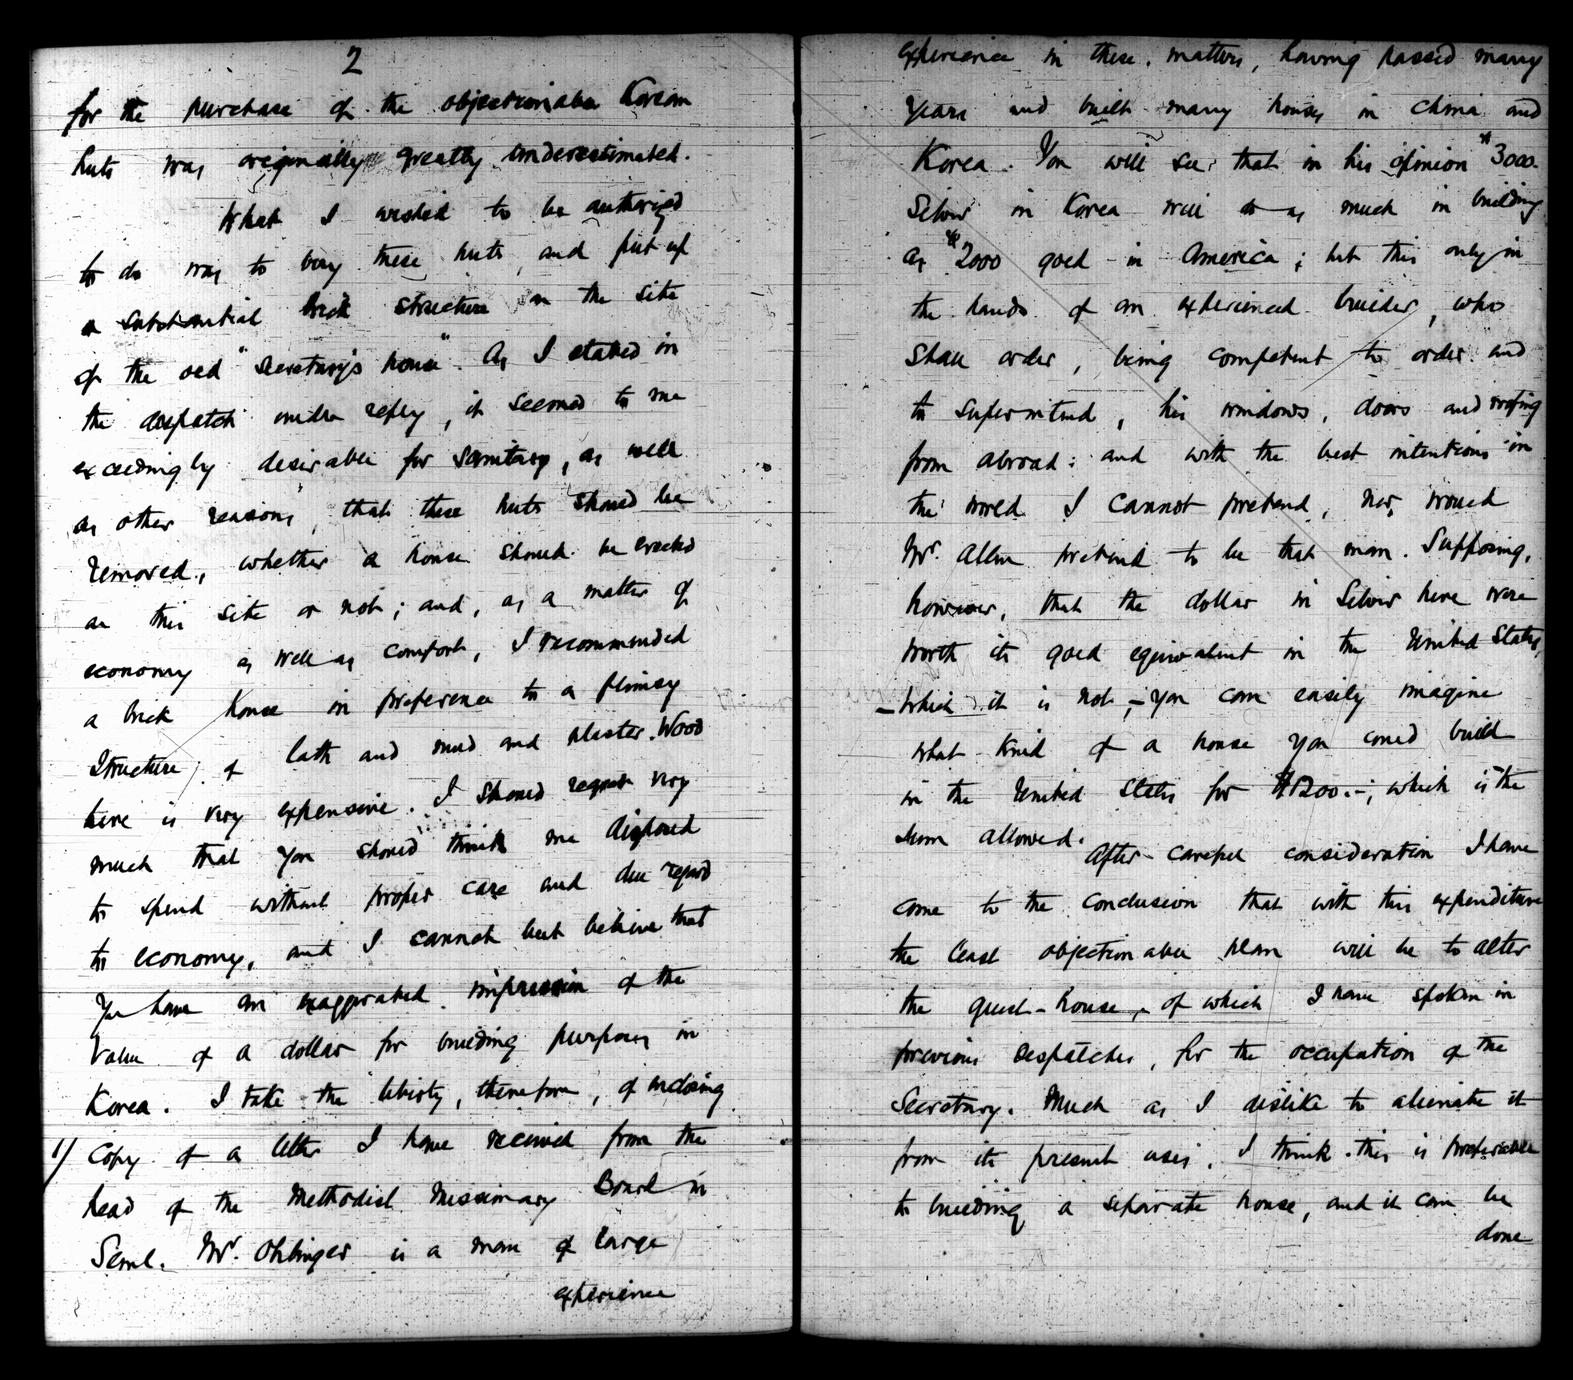 2
for the purchase of the objectionable Korean
huts was originally greatly underestimated.
What I wished to be authorized
to do was to buy these huts, and put up
a substantial brick structure on the site
of the old "Secretary's house". As I stated in
the despatch under reply, it seemed to me
exceedingly desirable for sanitary, as well
as other reasons, that these huts should be
removed, whether a house should be erected
on this site or not; and, as a matter of
economy as well as comfort, I recommended
a brick house in preference to a flimsy
structure of lath and mud and plaster. Wood
here is very expensive. I should regret very
much that you should think me disposed
to spend without proper care and due regard
to economy, and I cannot but believe that
you have an exaggerated impression of the
value of a dollar for building purposes in
Korea. I take the liberty, therefore, of inclosing
1/ Copy of a letter I have received from the
head of the Methodist Missionary Board in
Seoul. Mr. Ohlinger is a man of large
experience
experience in these matters, having passed many
years and built many houses in China and
Korea. You will see that in his opinion $3000.
Silver in Korea will do as much in building
as $2000 gold in America; but this only in
the hands of an experienced builder, who
shall order, being competent to order and
to superintend, his windows, doors and roofing
from abroad: and with the best intentions in
the world I cannot pretend, nor would
Mr. Allen pretend to be that man. Supposing,
however, that the dollar in Silver here were
worth its gold equivalent in the United States,
—which it is not,—you can easily imagine
what kind of a house you could build
in the United States for $1200.-; which is the
sum allowed.
After careful consideration I have
come to the conclusion that with this expenditure
the least objectionable plan will be to alter
the guest-house, of which I have spoken in
previous despatches, for the occupation of the
Secretary. Much as I dislike to alienate it
from its present uses, I think this is preferable
to building a separate house, and it can be
done